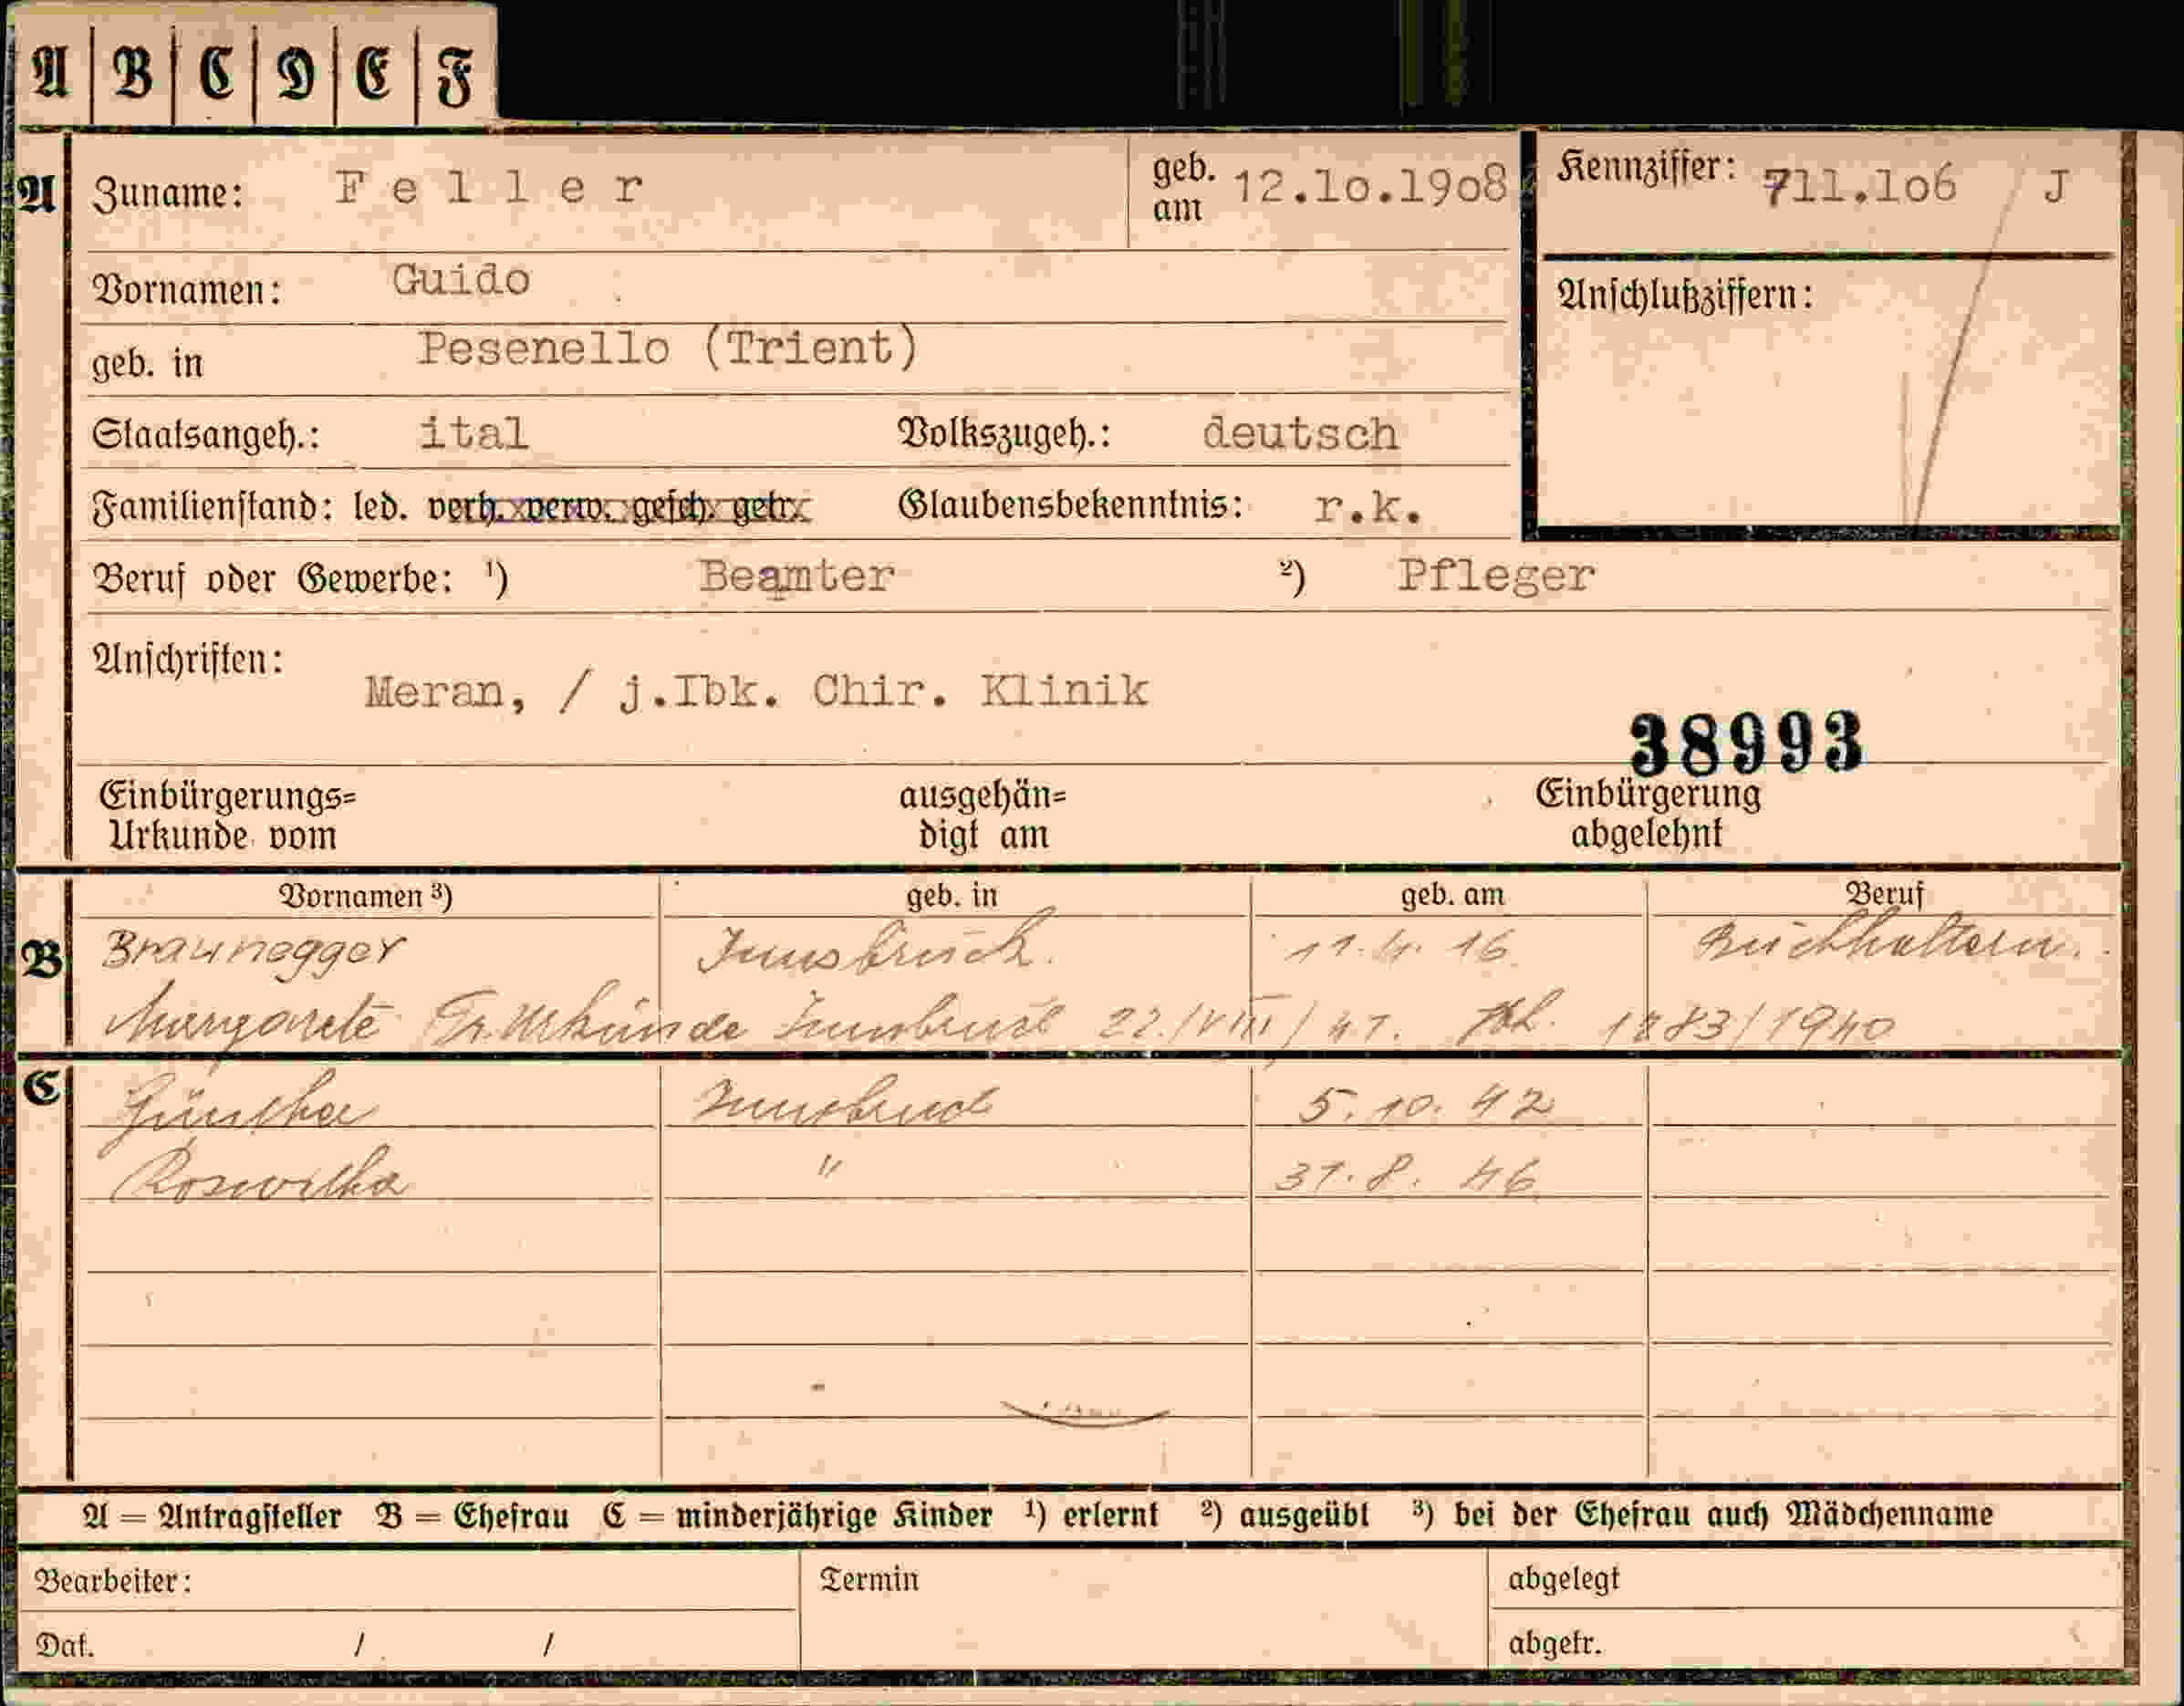 A B C D E F
A Zuname: Feller geb. am 12.10.1908 Kennziffer: 711.106 J
Vornamen: Guido Anschlußziffern:
geb. in Pesenello (Trient)
Staatsangeh.: ital Volkszugeh.: deutsch
Familienstand: led. verh. verw. gesch. getr. Glaubensbekenntnis: r.k.
Beruf oder Gewerbe: ¹) Beamter ²) Pfleger
Anschriften:
Meran, / j.Ibk. Chir. Klinik
38993
Einbürgerungs= ausgehän= Einbürgerung
Urkunde vom digt am abgelehnt
Vornamen ³) geb. in geb. am Beruf
B Braunegger Innsbruck. 11.4.16 Buchhalterin.
Margarete Tr. Urkunde Innsbruck 22./VIII/41. 1283/1940
C Günther Innsbruck 5.10.42
Roswitha " 31.8.46
A = Antragsteller B = Ehefrau C = minderjährige Kinder ¹) erlernt ²) ausgeübt ³) bei der Ehefrau auch Mädchenname
Bearbeiter: Termin abgelegt
Dat. / / abgetr.